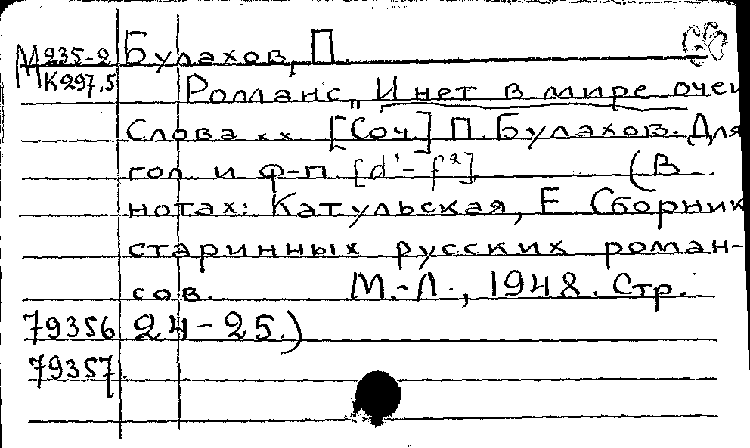 М 235-2 Булахов, П.
К 297.5 Романс „И нет в мире очей
Слова х х [Соч.] П. Булахов. Для
гол. и ф-п. [d¹-f²] (В
нотах: Катульская, Е Сборник
старинных русских роман-
сов. М.-Л., 1948. Стр.
79356 24-25.)
79357